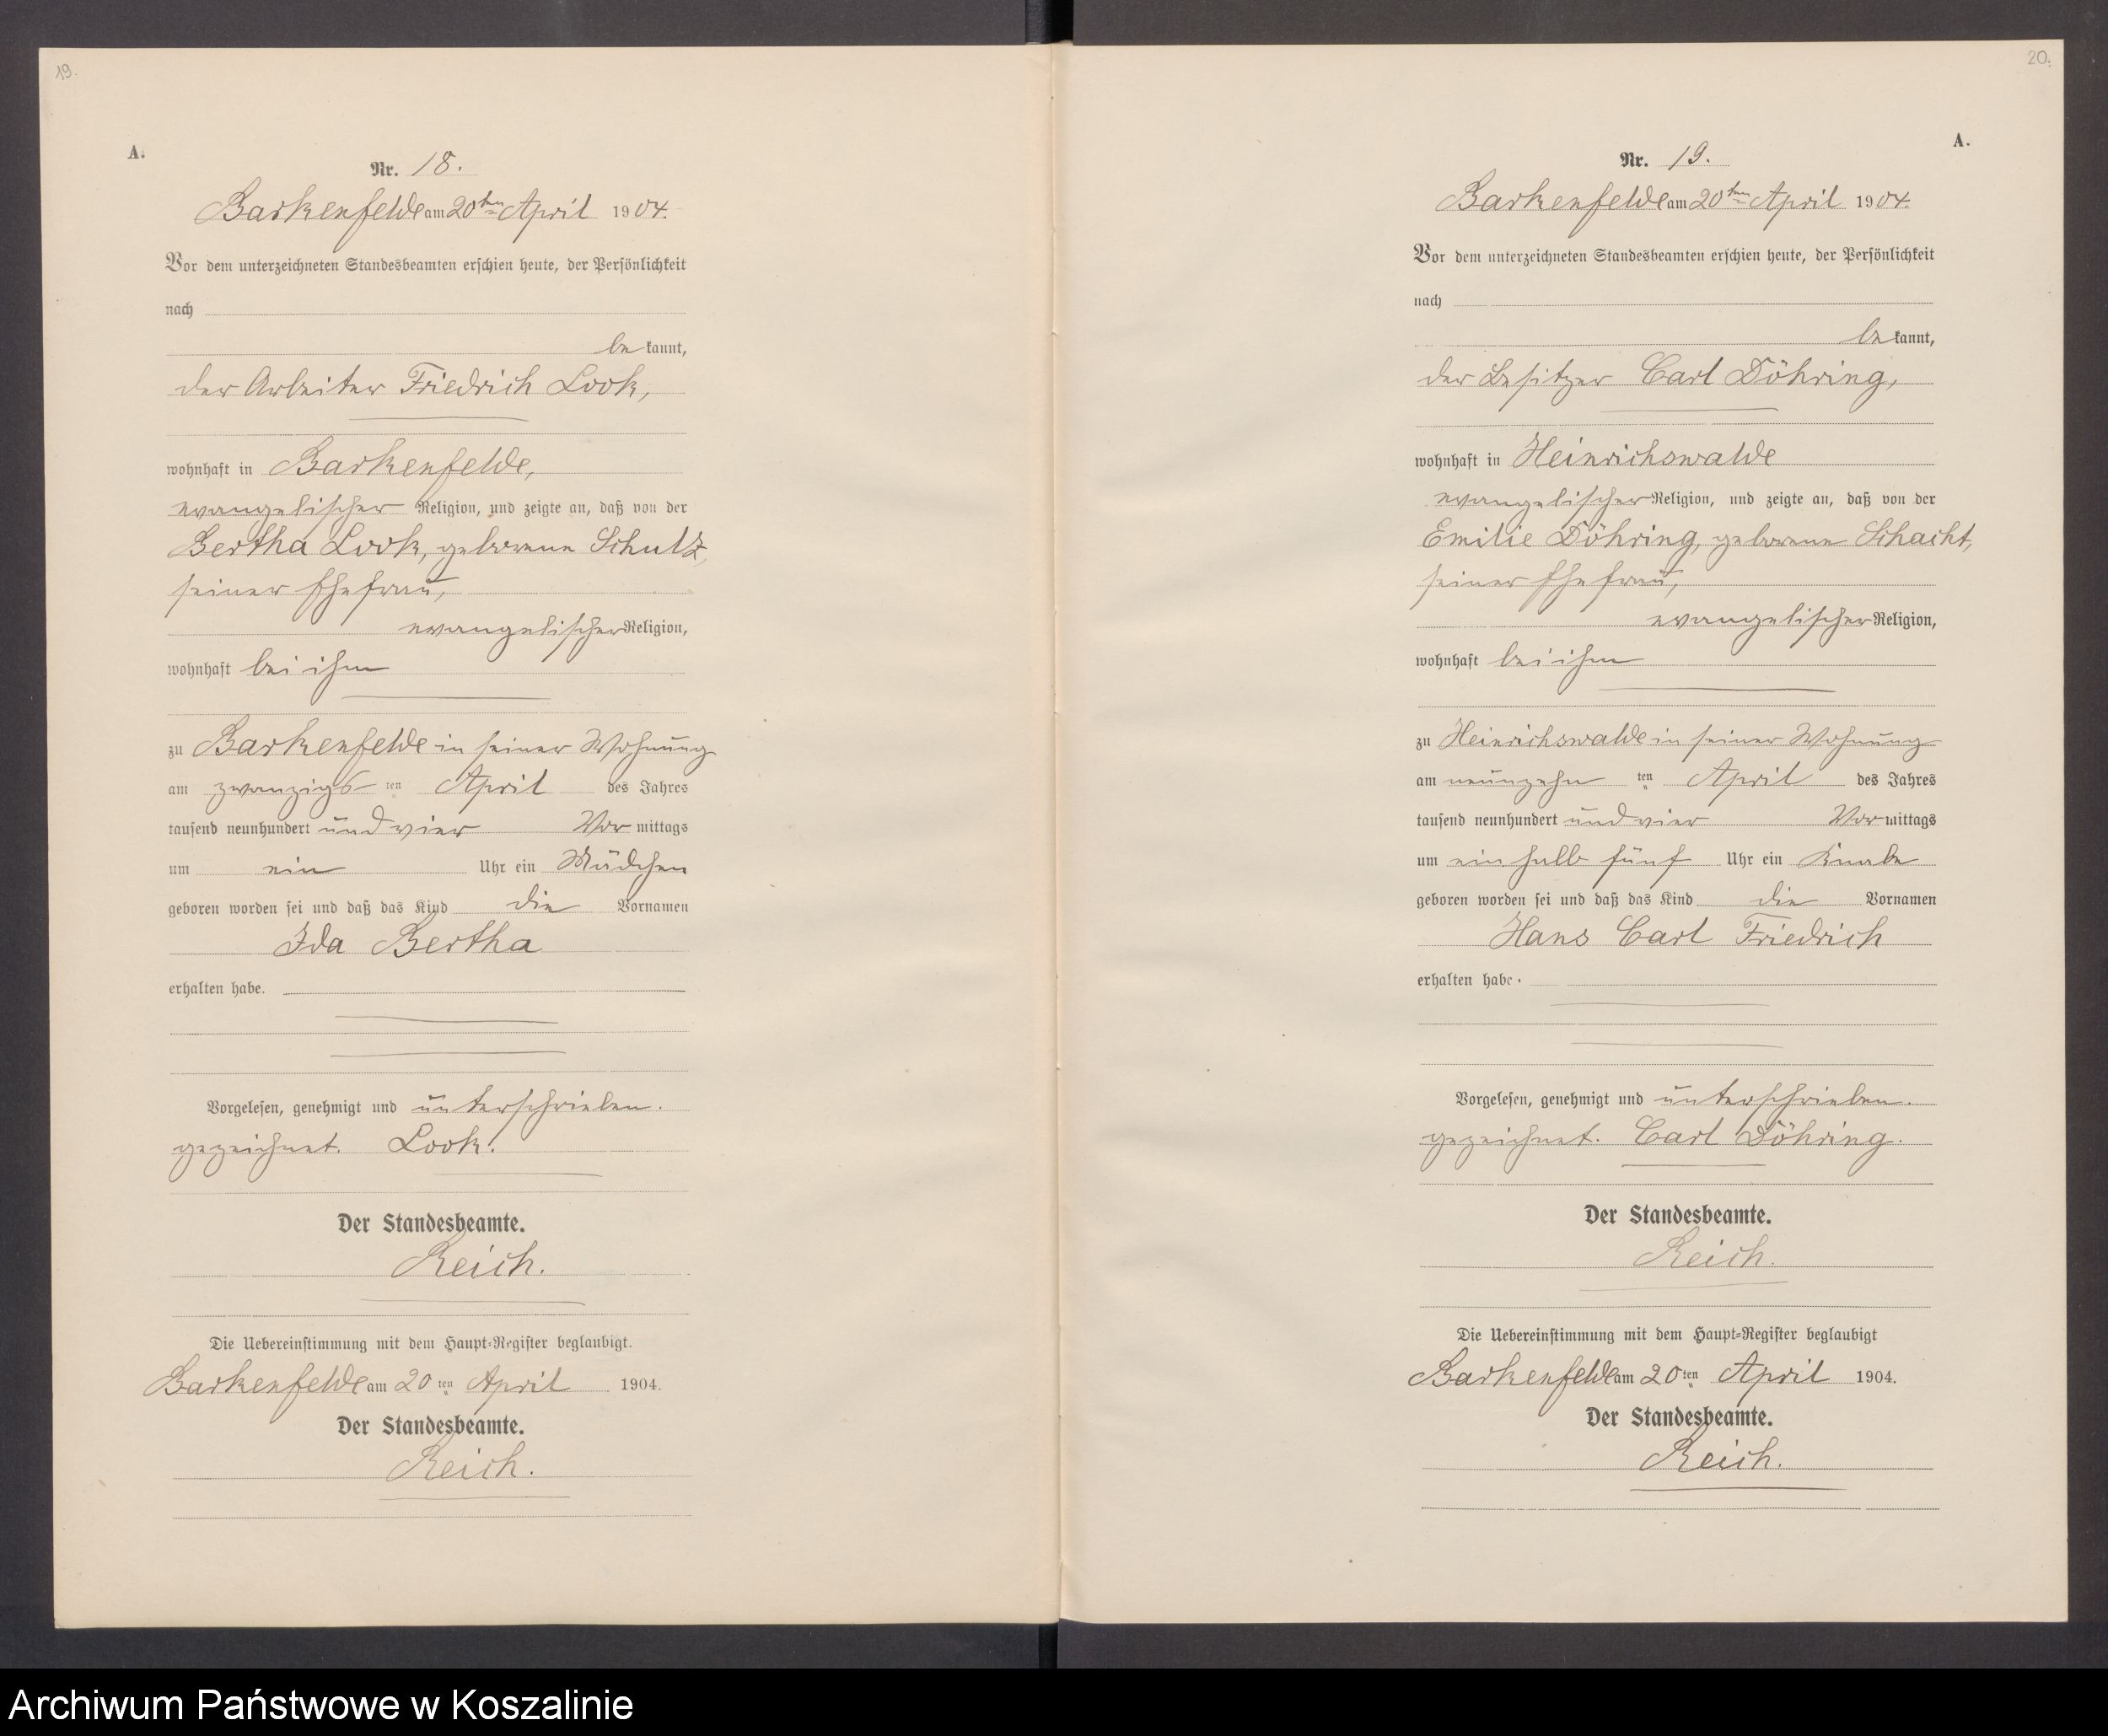 19.
A.
Nr. 18.
Barkenfelde am 20ten April 1904.
Vor dem unterzeichneten Standesbeamten erschien heute, der Persönlichkeit
nach
be kannt,
der Arbeiter Friedrich Look,
wohnhaft in Barkenfelde,
evangelischer Religion, und zeigte an, daß von der
Bertha Look, geborene Schulz,
seiner Ehefrau,
evangelischer Religion,
wohnhaft bei ihm
zu Barkenfelde in seiner Wohnung
am zwanzigs ten April des Jahres
tausend neunhundert und vier Vor mittags
um ein Uhr ein Mädchen
geboren worden sei und daß das Kind die Vornamen
Ida Bertha
erhalten habe.
Vorgelesen, genehmigt und unterschrieben.
gezeichnet. Look.
Der Standesbeamte.
Reich.
Die Uebereinstimmung mit dem Haupt-Register beglaubigt.
Barkenfelde am 20 ten April 1904.
Der Standesbeamte.
Reich.
20.
A.
Nr. 19.
Barkenfelde am 20ten April 1904.
Vor dem unterzeichneten Standesbeamten erschien heute, der Persönlichkeit
nach
be kannt,
der Besitzer Carl Döhring,
wohnhaft in Heinrichswalde
evangelischer Religion, und zeigte an, daß von der
Emilie Döhring, geborene Schacht,
seiner Ehefrau,
evangelischer Religion,
wohnhaft bei ihm
zu Heinrichswalde in seiner Wohnung
am neunzehn ten April des Jahres
tausend neunhundert und vier Vor mittags
um ein halb fünf Uhr ein Knabe
geboren worden sei und daß das Kind die Vornamen
Hans Carl Friedrich
erhalten habe.
Vorgelesen, genehmigt und unterschrieben.
gezeichnet. Carl Döhring.
Der Standesbeamte.
Reich.
Die Uebereinstimmung mit dem Haupt-Register beglaubigt
Barkenfelde am 20 ten April 1904.
Der Standesbeamte.
Reich.
Archiwum Państwowe w Koszalinie